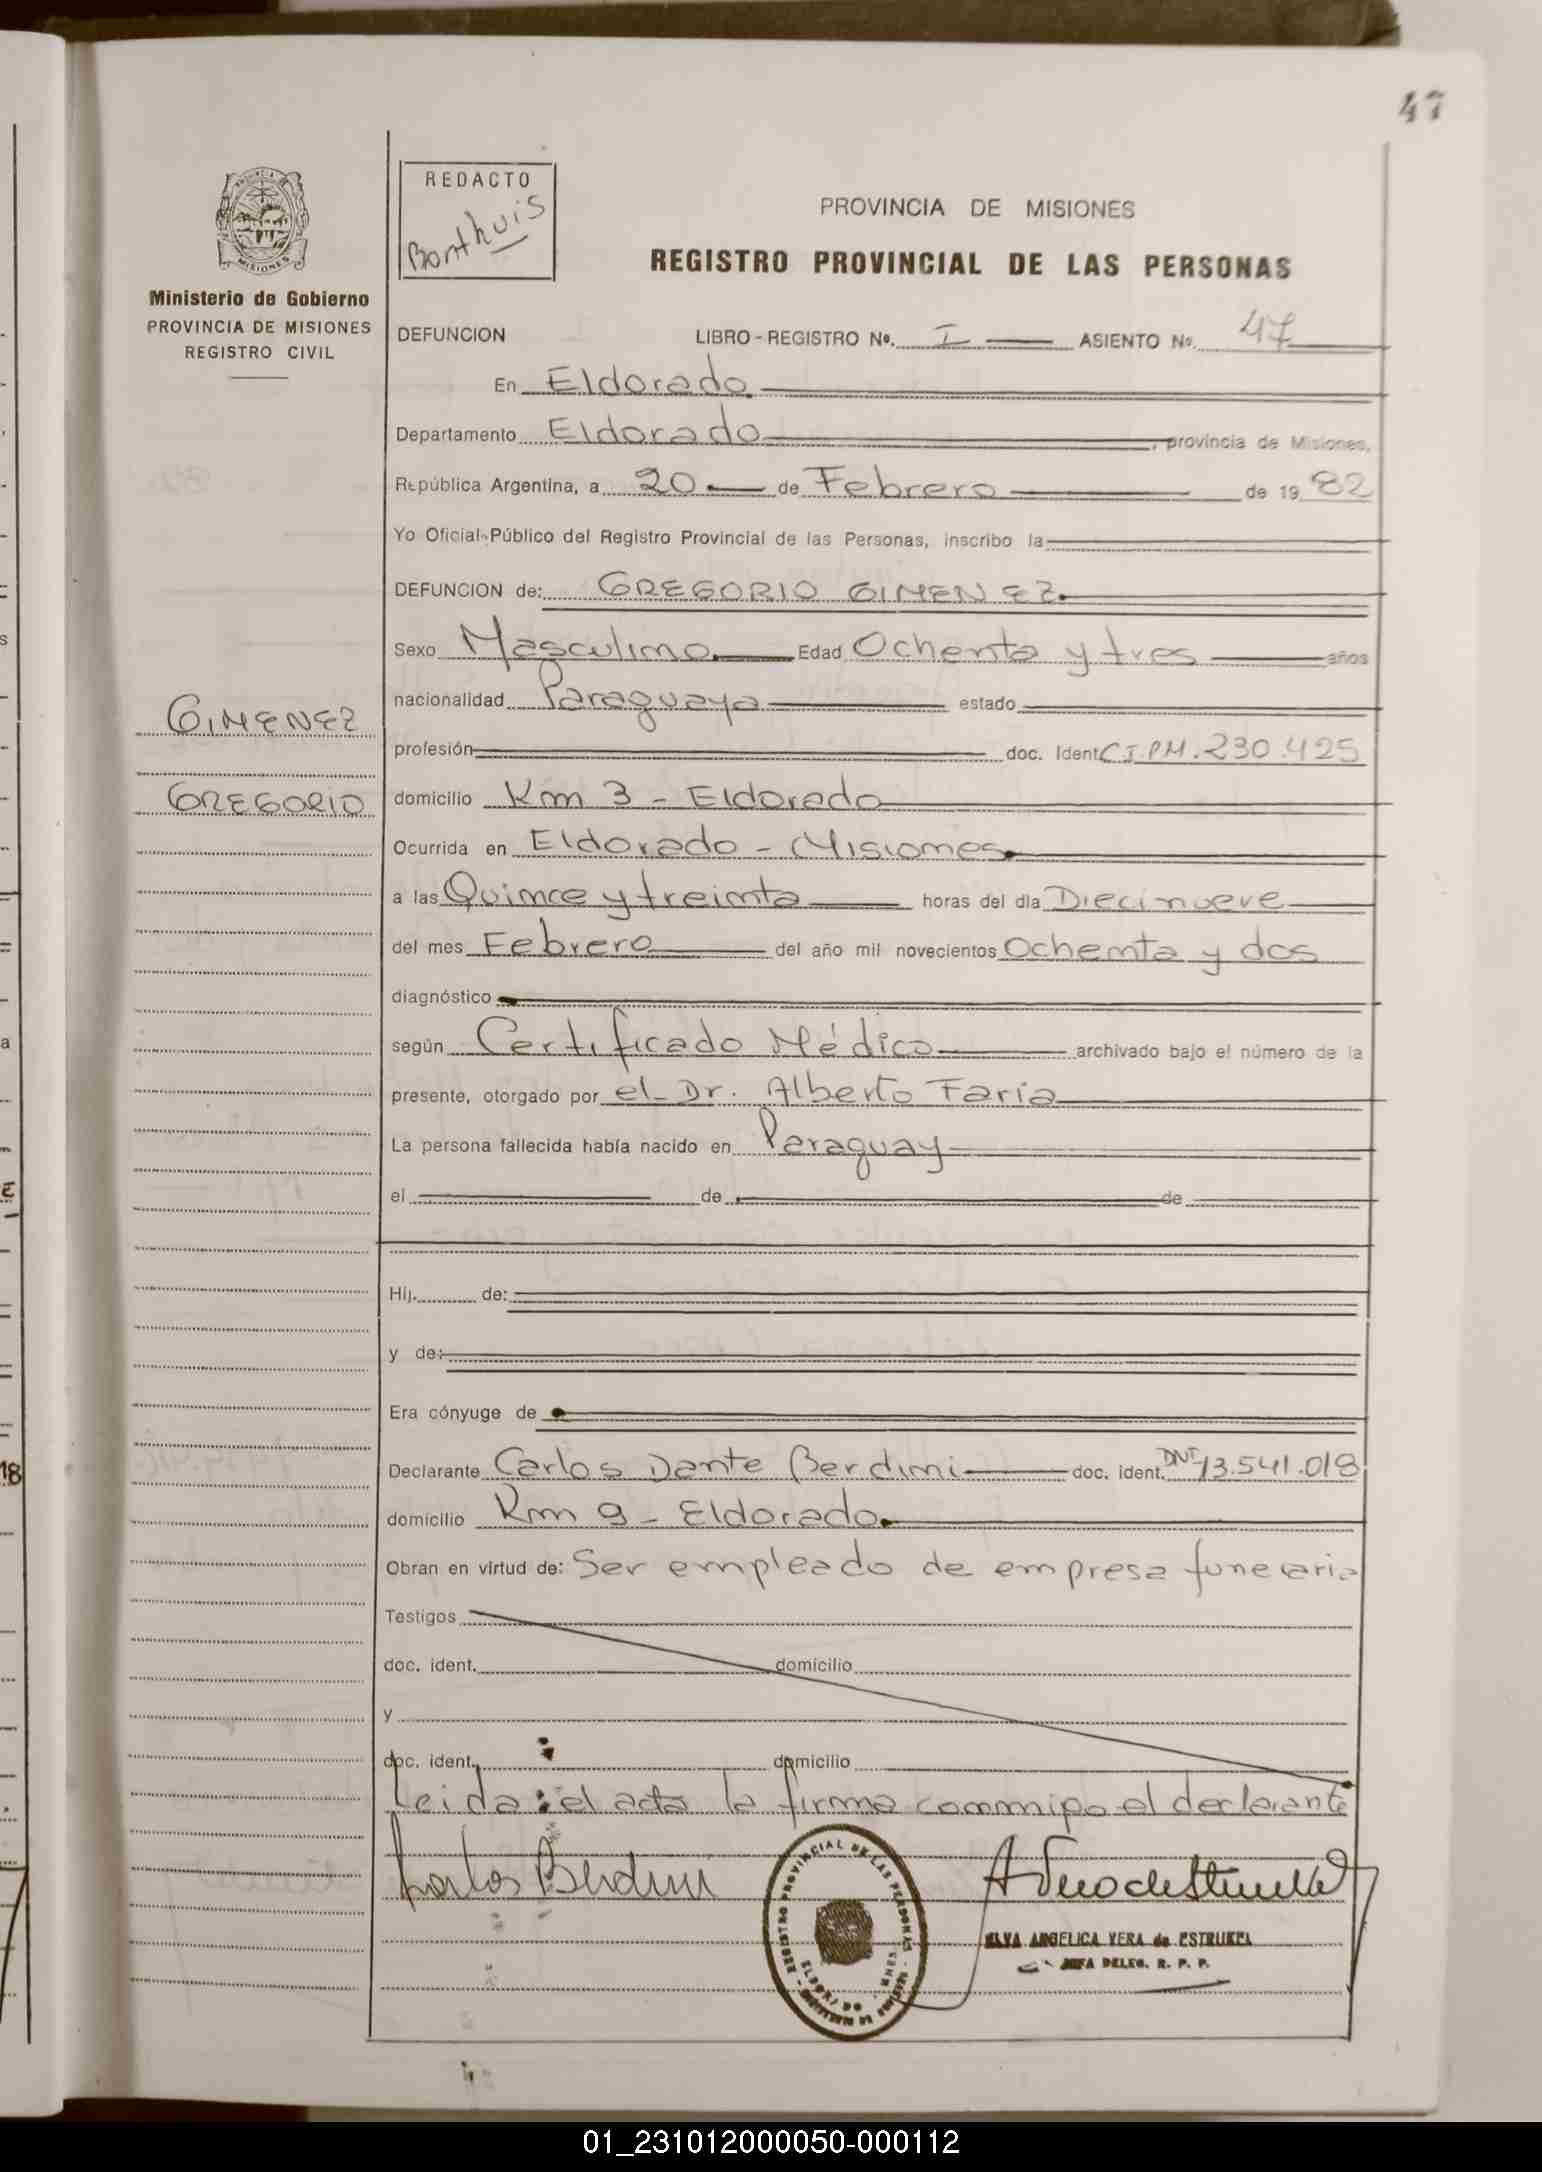 47
REDACTO
Bonthuis
PROVINCIA DE MISIONES
REGISTRO PROVINCIAL DE LAS PERSONAS
Ministerio de Gobierno
PROVINCIA DE MISIONES
REGISTRO CIVIL
DEFUNCION LIBRO-REGISTRO No. I ASIENTO No. 47
En Eldorado
Departamento Eldorado, provincia de Misiones,
República Argentina, a 20 de Febrero de 1982
Yo Oficial Público del Registro Provincial de las Personas, inscribo la
DEFUNCION de: GREGORIO GIMENEZ
Sexo Masculino Edad Ochenta y tres años
nacionalidad Paraguaya estado
GIMENEZ
profesión doc. Ident C.I.PM.230.425
GREGORIO
domicilio Km 3 - Eldorado
Ocurrida en Eldorado - Misiones
a las Quince y treinta horas del día Diecinueve
del mes Febrero del año mil novecientos Ochenta y dos
diagnóstico
según Certificado Médico archivado bajo el número de la
presente, otorgado por el Dr. Alberto Faria
La persona fallecida había nacido en Paraguay
el de de
Hij. de:
y de:
Era cónyuge de
Declarante Carlos Dante Berdini doc. ident. DNI 13.541.018
domicilio Km 9 - Eldorado
Obran en virtud de: Ser empleado de empresa funeraria
Testigos
doc. ident. domicilio
y
doc. ident. domicilio
Leida el acta la firma conmigo el declarante
Carlos Berdini
REGISTRO PROVINCIAL DE LAS PERSONAS
ELVA ANGELICA VERA de ESTRUKEL
JEFA DELEG. R. P. P.
01_231012000050-000112